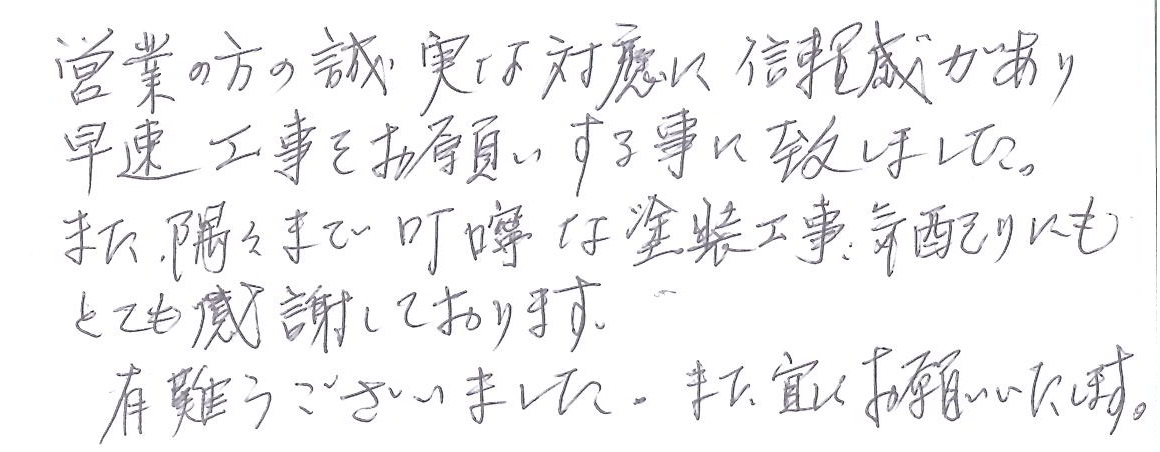 営業の方の誠実な対應に信頼感があり
早速工事をお願いする事に致しました。
また、隅々まで叮嚀な塗装工事、気配りにも
とても感謝しております。
有難うございました。また宜しくお願いいたします。